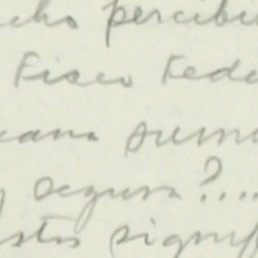 cho percibi
Fisco Fede
cana suma
y segura?....
stos signif